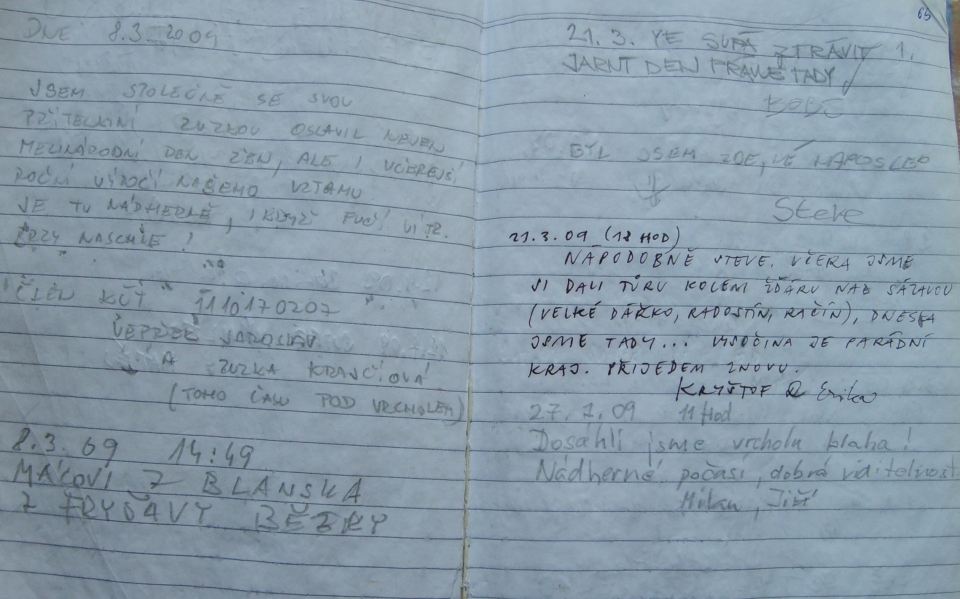 DNE 8.3.2009
JSEM SPOLEČNĚ SE SVOU
PŘÍTELKINÍ ZUZKOU OSLAVIL NEJEN
MEZINÁRODNÍ DEN ŽEN, ALE I VČEREJŠÍ
ROČNÍ VÝROČÍ NAŠEHO VZTAHU
JE TU NÁDHERNĚ, I KDYŽ FUČÍ VÍTR.
BRZY NASCHLE!
"ČLEN KČT" 1110170207
VEPŘEK JAROSLAV
A ZUZKA KRAJČÍOVÁ
(TOHO ČASU POD VRCHOLEM)
8.3.09 14:49
MACOVI Z BLANSKA
Z FRYŠAVY BĚŽKY
65
21.3. JE SUPR ZTRÁVIT 1.
JARNÍ DEN PRÁVĚ TADY
BYL JSEM ZDE, NE NAPOSLED
Steve
21.3.09 (12 HOD)
NAPODOBNĚ STEVE. VČERA JSME
SI DALI TÚRU KOLEM ŽĎÁRU NAD SÁZAVOU
(VELKÉ DÁŘKO, RADOSTÍN, RAČÍN), DNESKA
JSME TADY... VYSOČINA JE PARÁDNÍ
KRAJ. PŘIJEDEM ZNOVU.
KRYŠTOF & Erika
27.7.09 11 Hod
Dosáhli jsme vrcholu blaha!
Nádherné počasí, dobrá viditelnost
Milan, Jiří